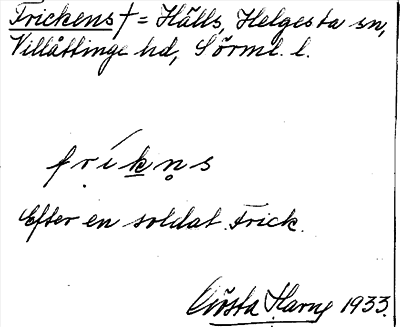 Frickens † = Hälls, Helgesta sn,
Villåttinge hd, Sörml. l.
fríkṇs
Efter en soldat Frick.
Gösta Harne 1933.